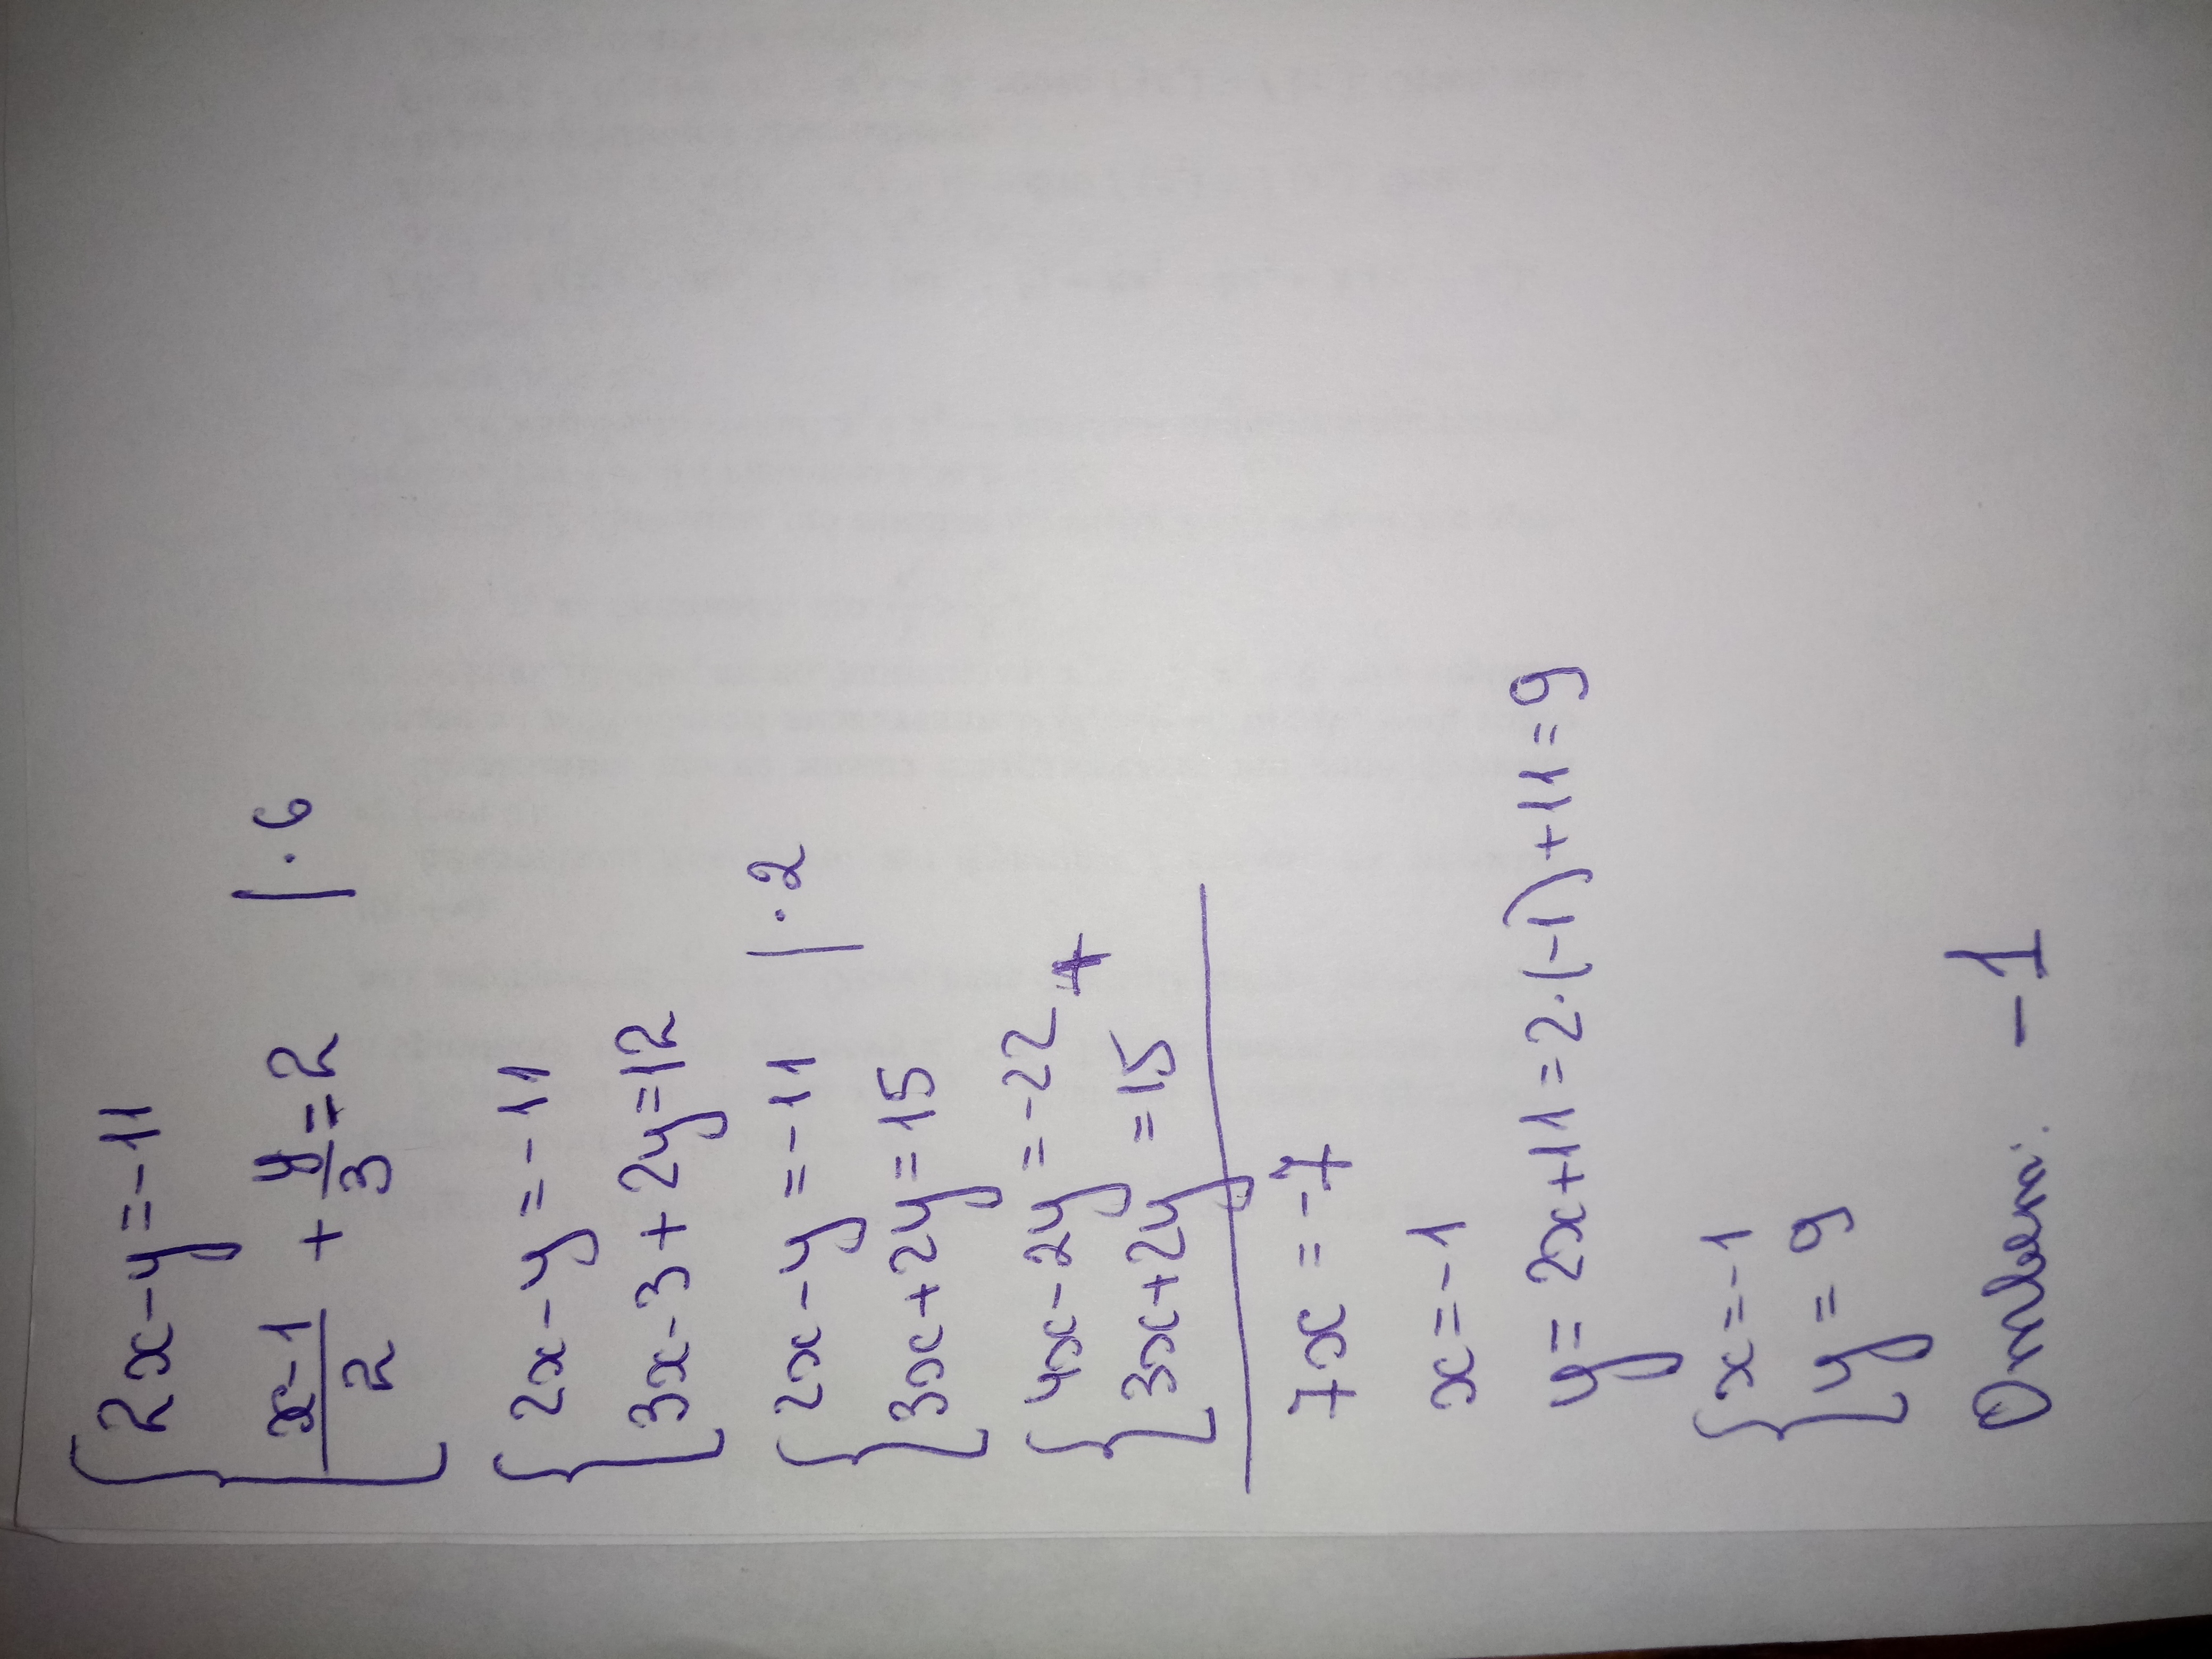 { 2x-y=-11
{ (x-1)/2 + y/3 = 2 | ·6
{ 2x-y=-11
{ 3x-3+2y=12
{ 2x-y=-11 | ·2
{ 3x+2y=15
{ 4x-2y=-22 +
{ 3x+2y=15
7x=-7
x=-1
y=2x+11=2·(-1)+11=9
{ x=-1
{ y=9
Ответ: -1